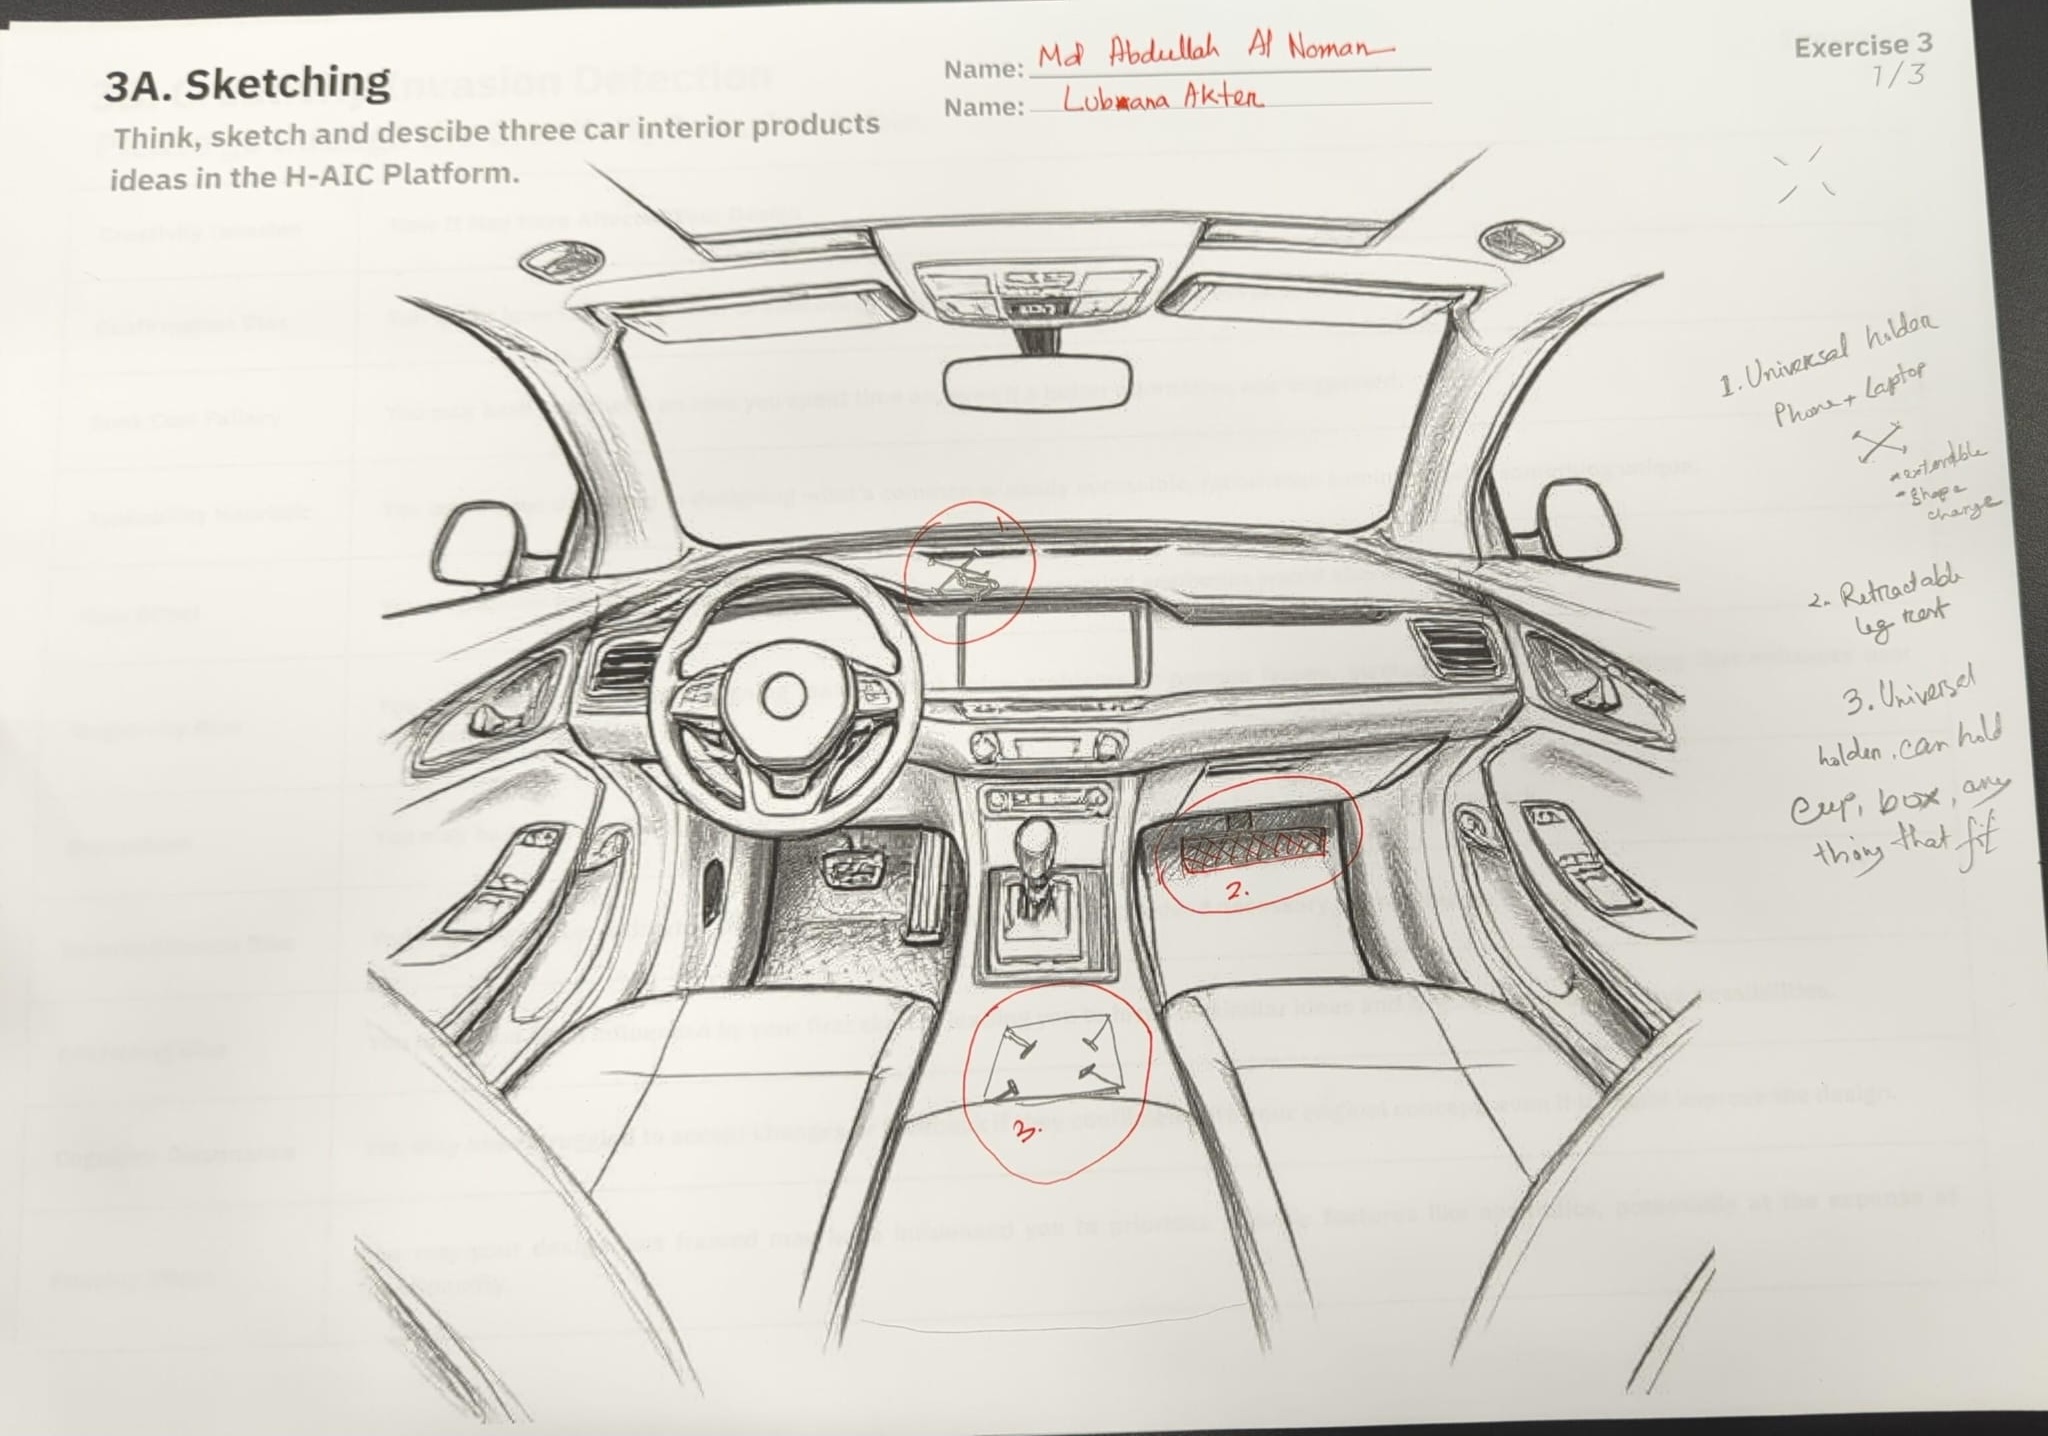 3A. Sketching
Think, sketch and descibe three car interior products
ideas in the H-AIC Platform.
Name: Md Abdullah Al Noman
Name: Lubnana Akter
Exercise 3
1/3
1. Universal holder
Phone + Laptop
*extendable
*Shape
change
2. Retractable
leg rest
3. Universal
holder. can hold
Cup, box, any
thing that fit
1.
2.
3.